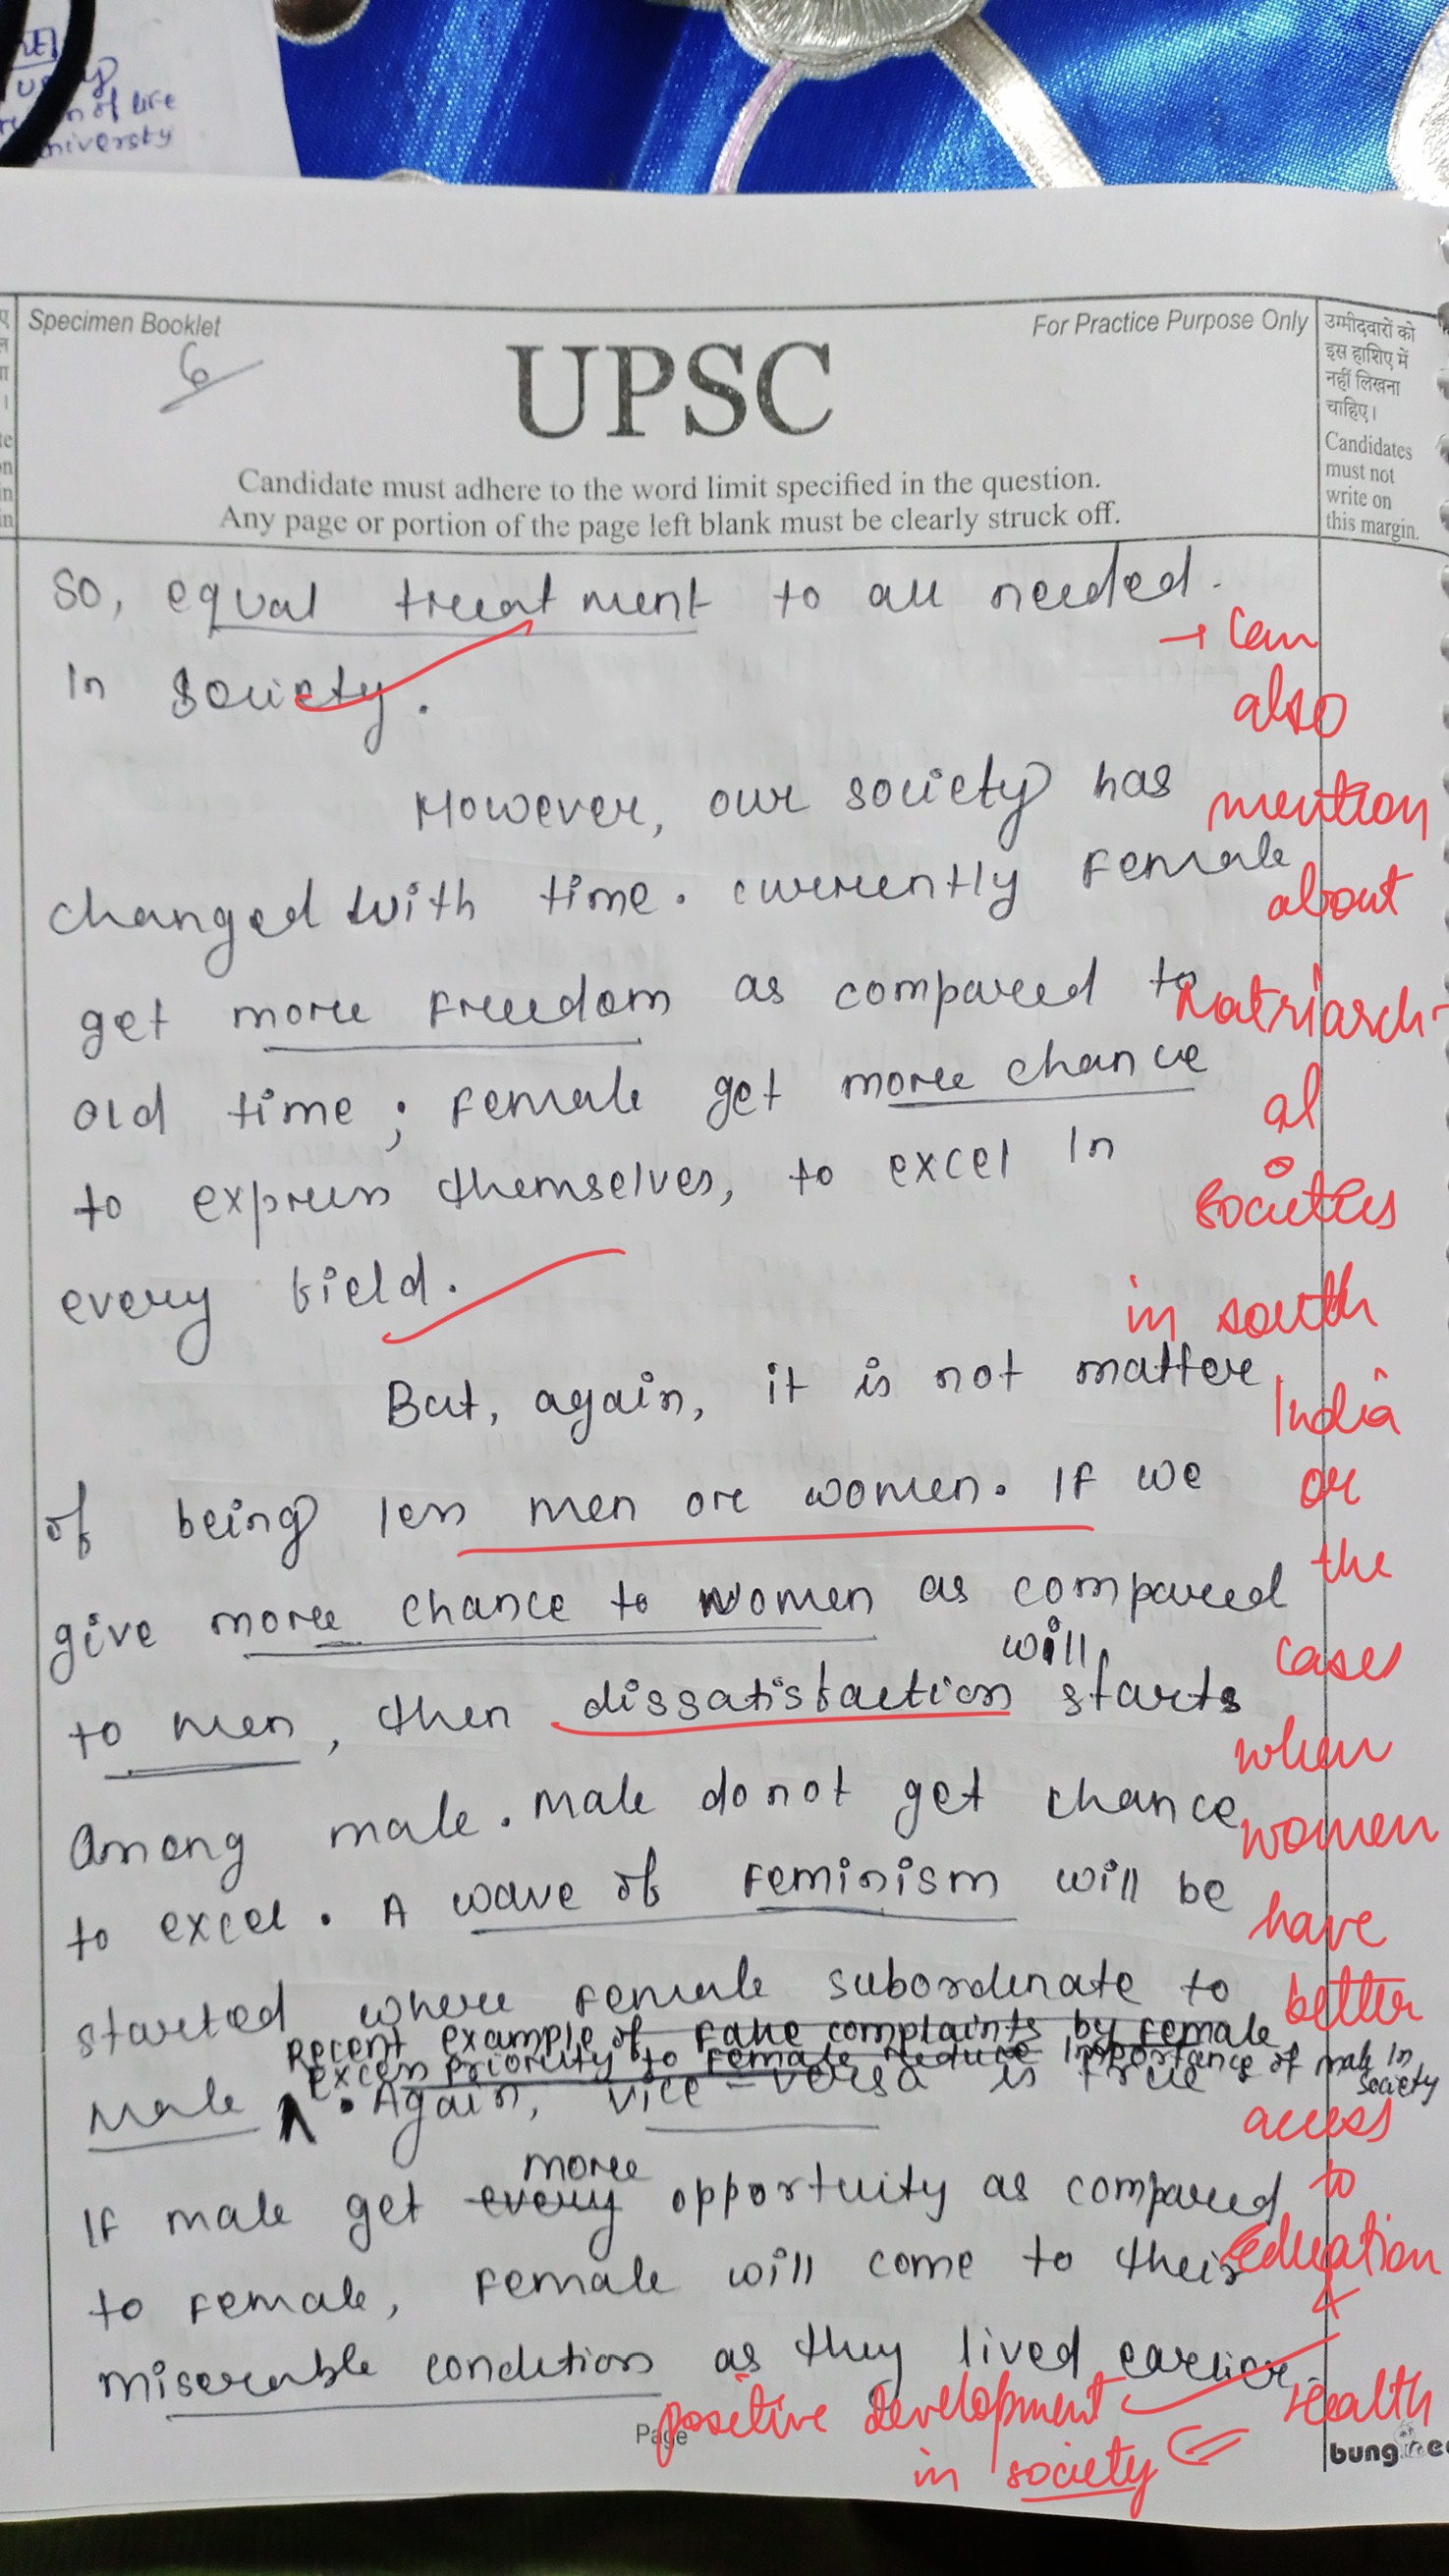 of life
niversity
Specimen Booklet
For Practice Purpose Only
6
UPSC
Candidate must adhere to the word limit specified in the question.
Any page or portion of the page left blank must be clearly struck off.
उम्मीदवारों को
इस हाशिए में
नहीं लिखना
चाहिए।
Candidates
must not
write on
this margin.
So, equal treatment to all needed.
in society.
However, our society has
changed with time. currently Female
get more Freedom as compared to
old time; Female get more chance
to express themselves, to excel in
every field.
But, again, it is not matter
of being less men or women. If we
give more chance to women as compared
to men, then dissatisfaction will starts
among male. Male do not get chance
to excel. A wave of Feminism will be
started where Female subordinate to
Recent example of Fake complaints by Female
excess priority to Female reduce importance of male in society
Male. Again, vice-versa is true
If male get every more opportuity as compared
to Female, Female will come to their
miserable condition as they lived earlier.
→ Can
also
mention
about
Matriarch-
al
societies
in south
India
or
the
cases
when
women
have
better
access
to
education
+
Health
⇐
positive development
in society
Page